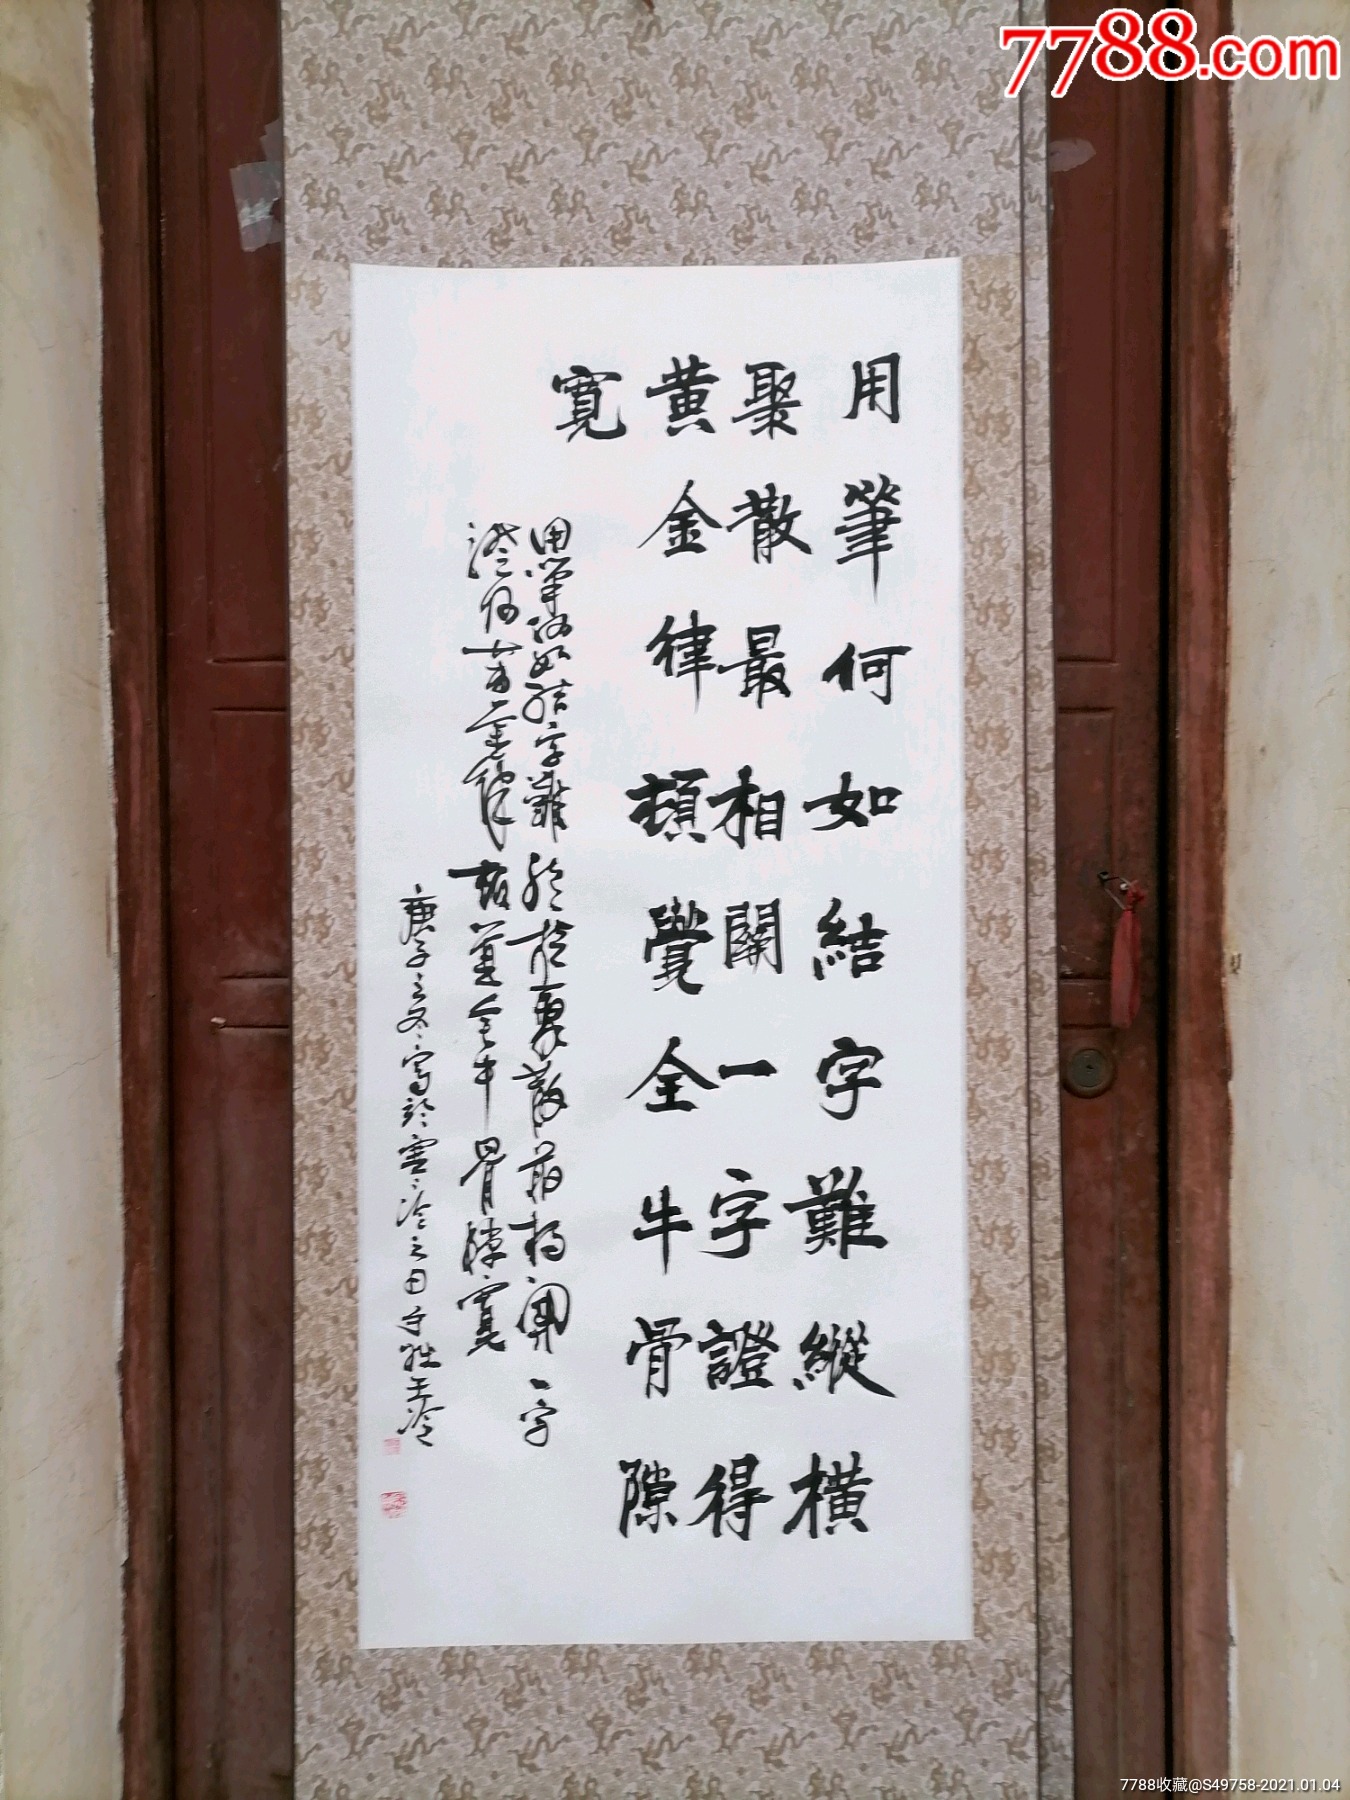 7788.com
用筆何如結字難縱橫
聚散最相關一字證得
黃金律頓覺全牛骨隙
寬
用筆何如結字難縱橫聚散最相關一字
證得黃金律頓覺全牛骨隙寬
庚子之冬寫於
7788收藏@S49758-2021.01.04